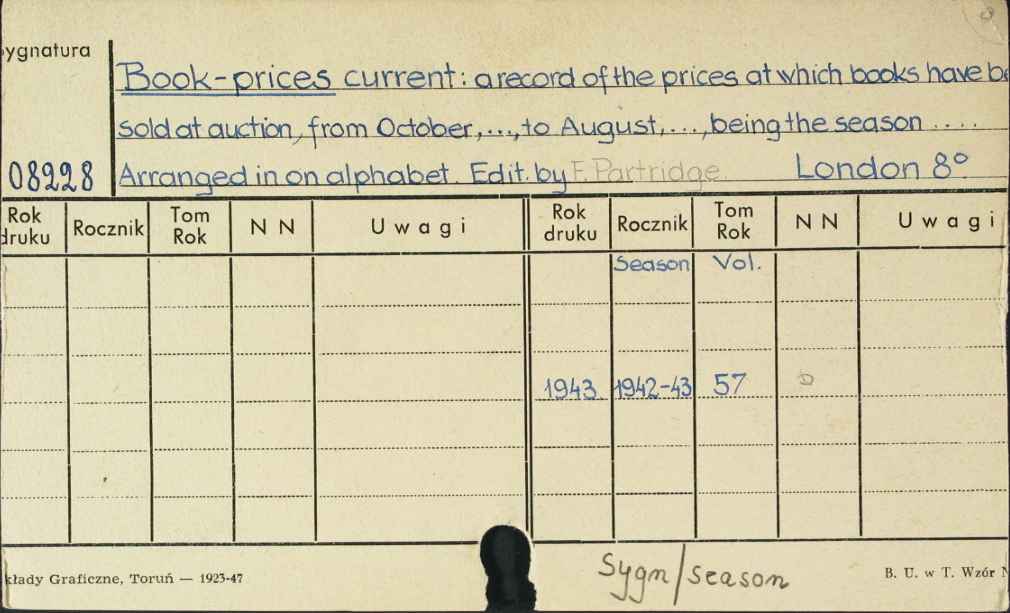 ygnatura
Book-prices current: a record of the prices at which books have be
sold at auction, from October, ..., to August, ..., being the season ....
08228 Arranged in on alphabet. Edit. by F. Partridge London 8°
Rok druku Rocznik Tom Rok N N Uwagi Rok druku Rocznik Tom Rok N N Uwagi
Season Vol.
1943 1942-43 57 D
kłady Graficzne, Toruń — 1923-47 Sygn/season B. U. w T. Wzór N